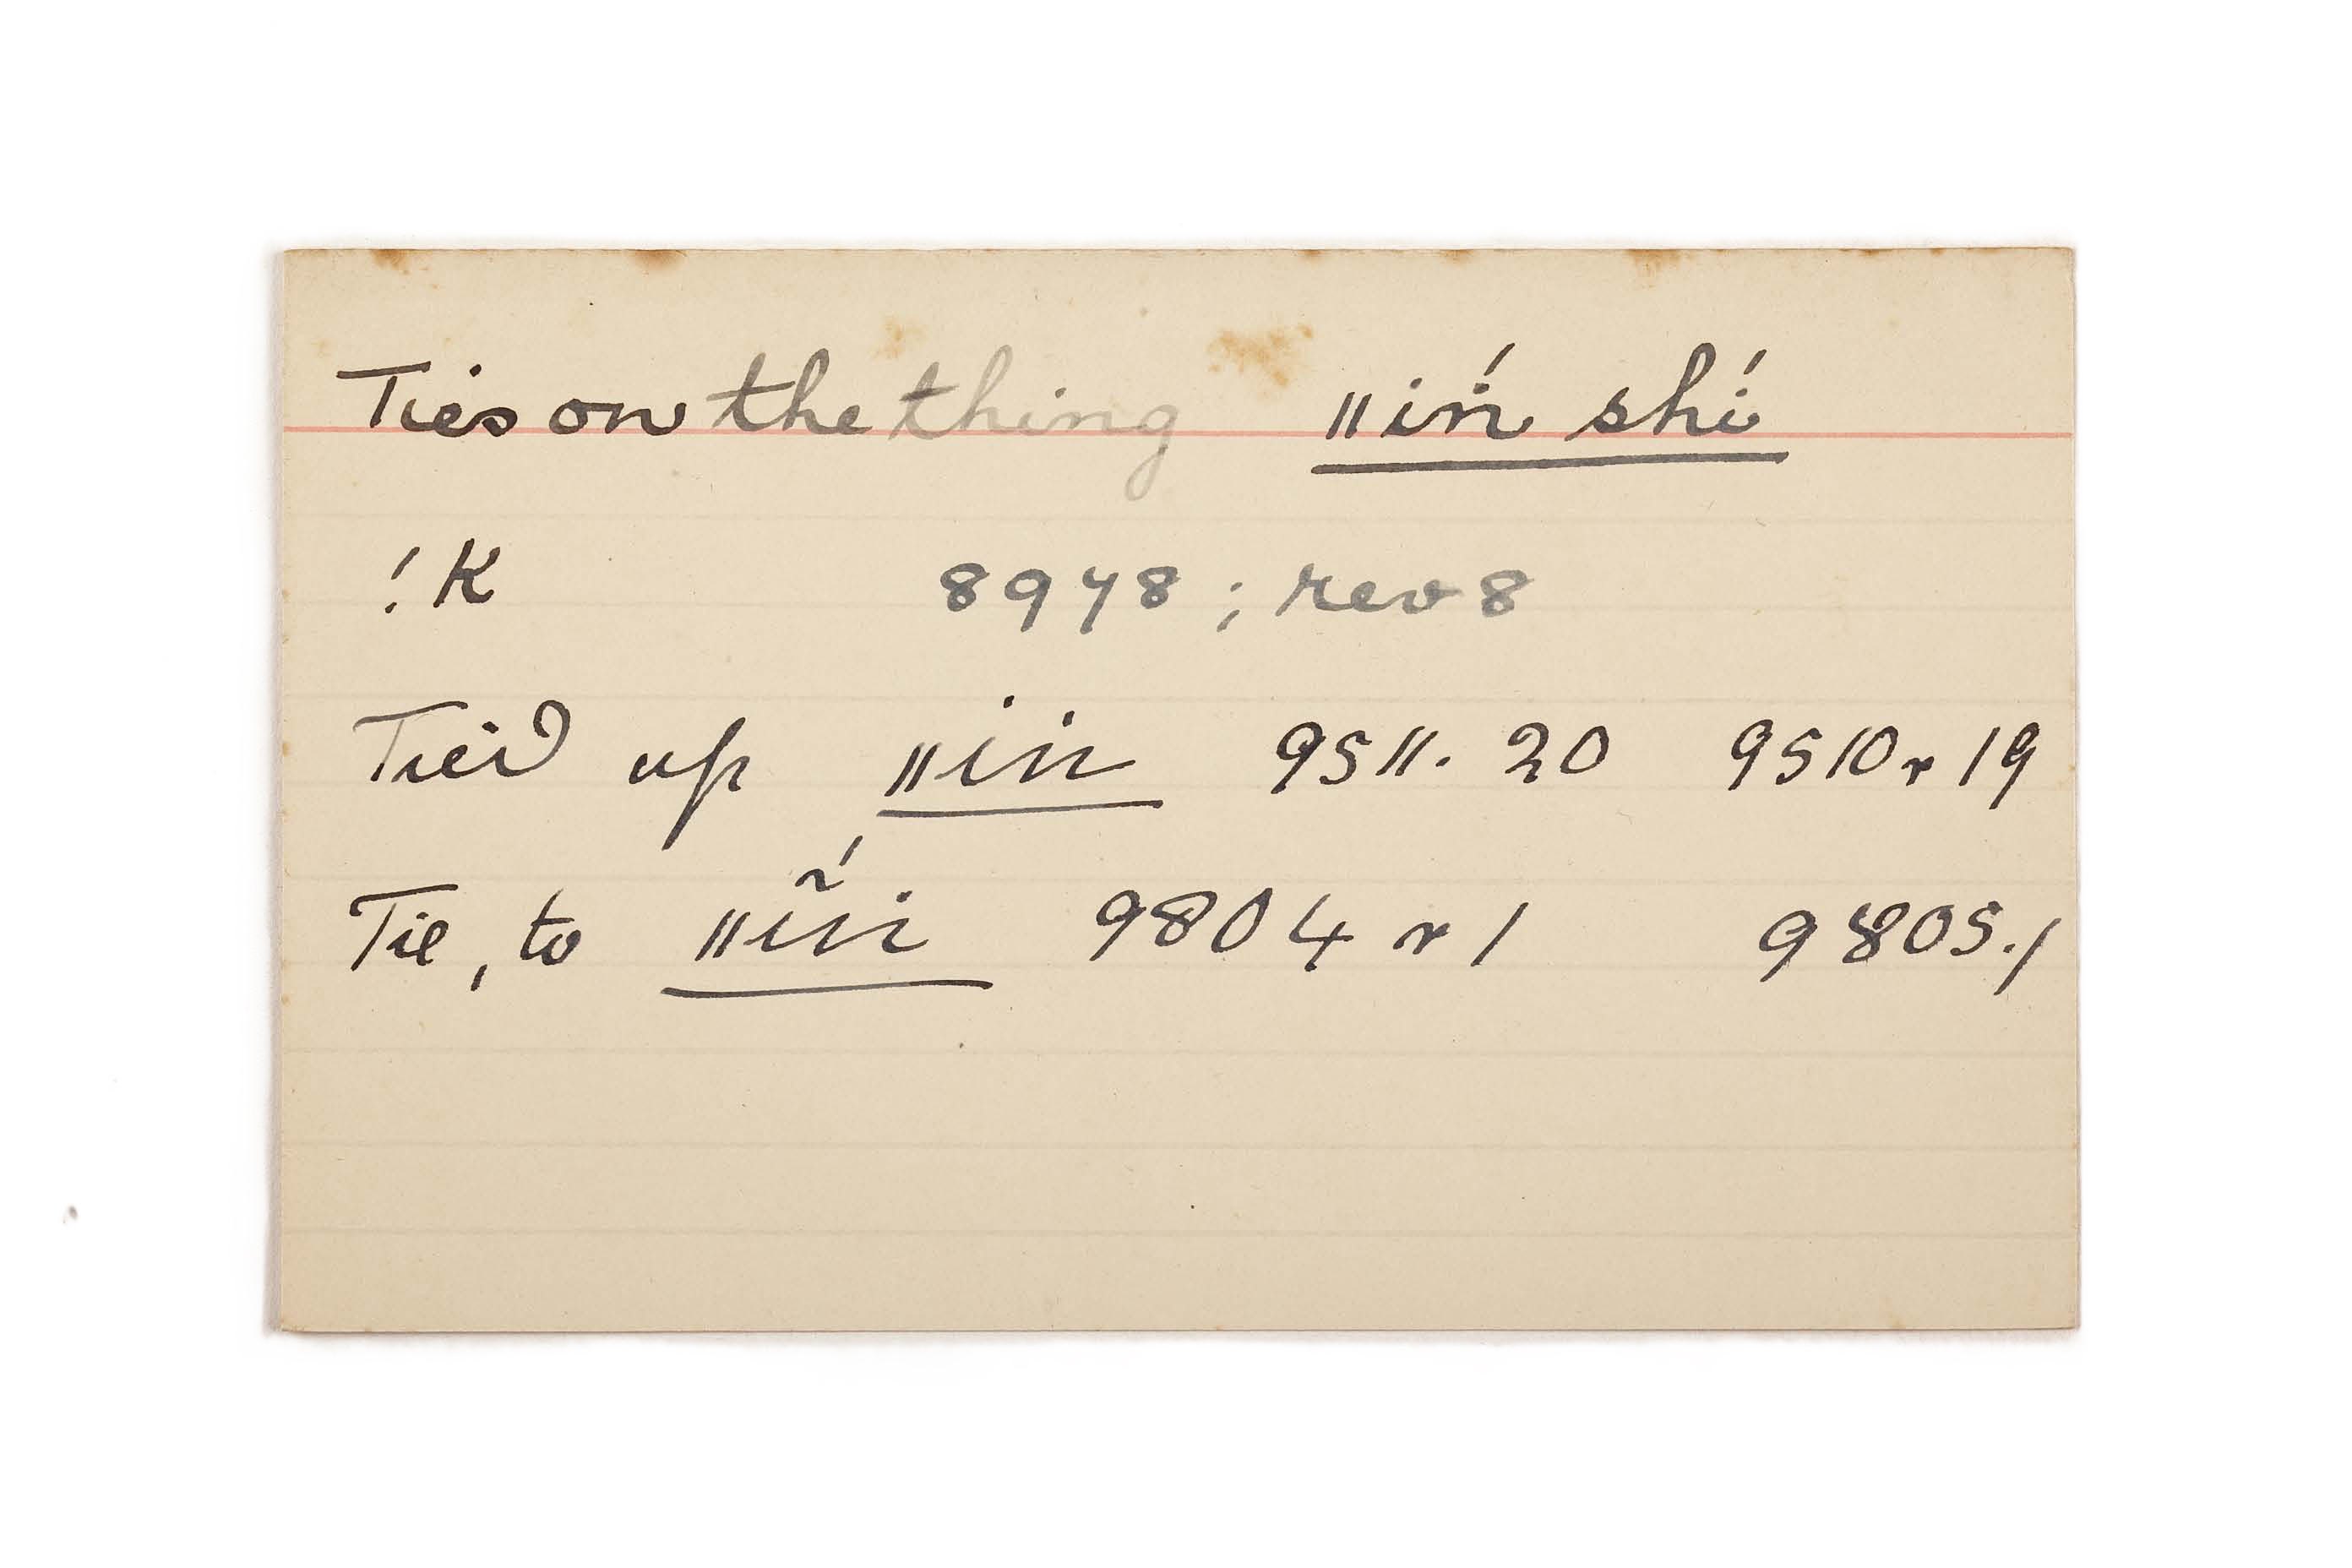 Ties on the thing ǁiń shí
!K 8978 ; rev 8
Tied up ǁin 9511. 20 9510 r 19
Tie, to ǁĩ́n 9804 r 1 9805. 1